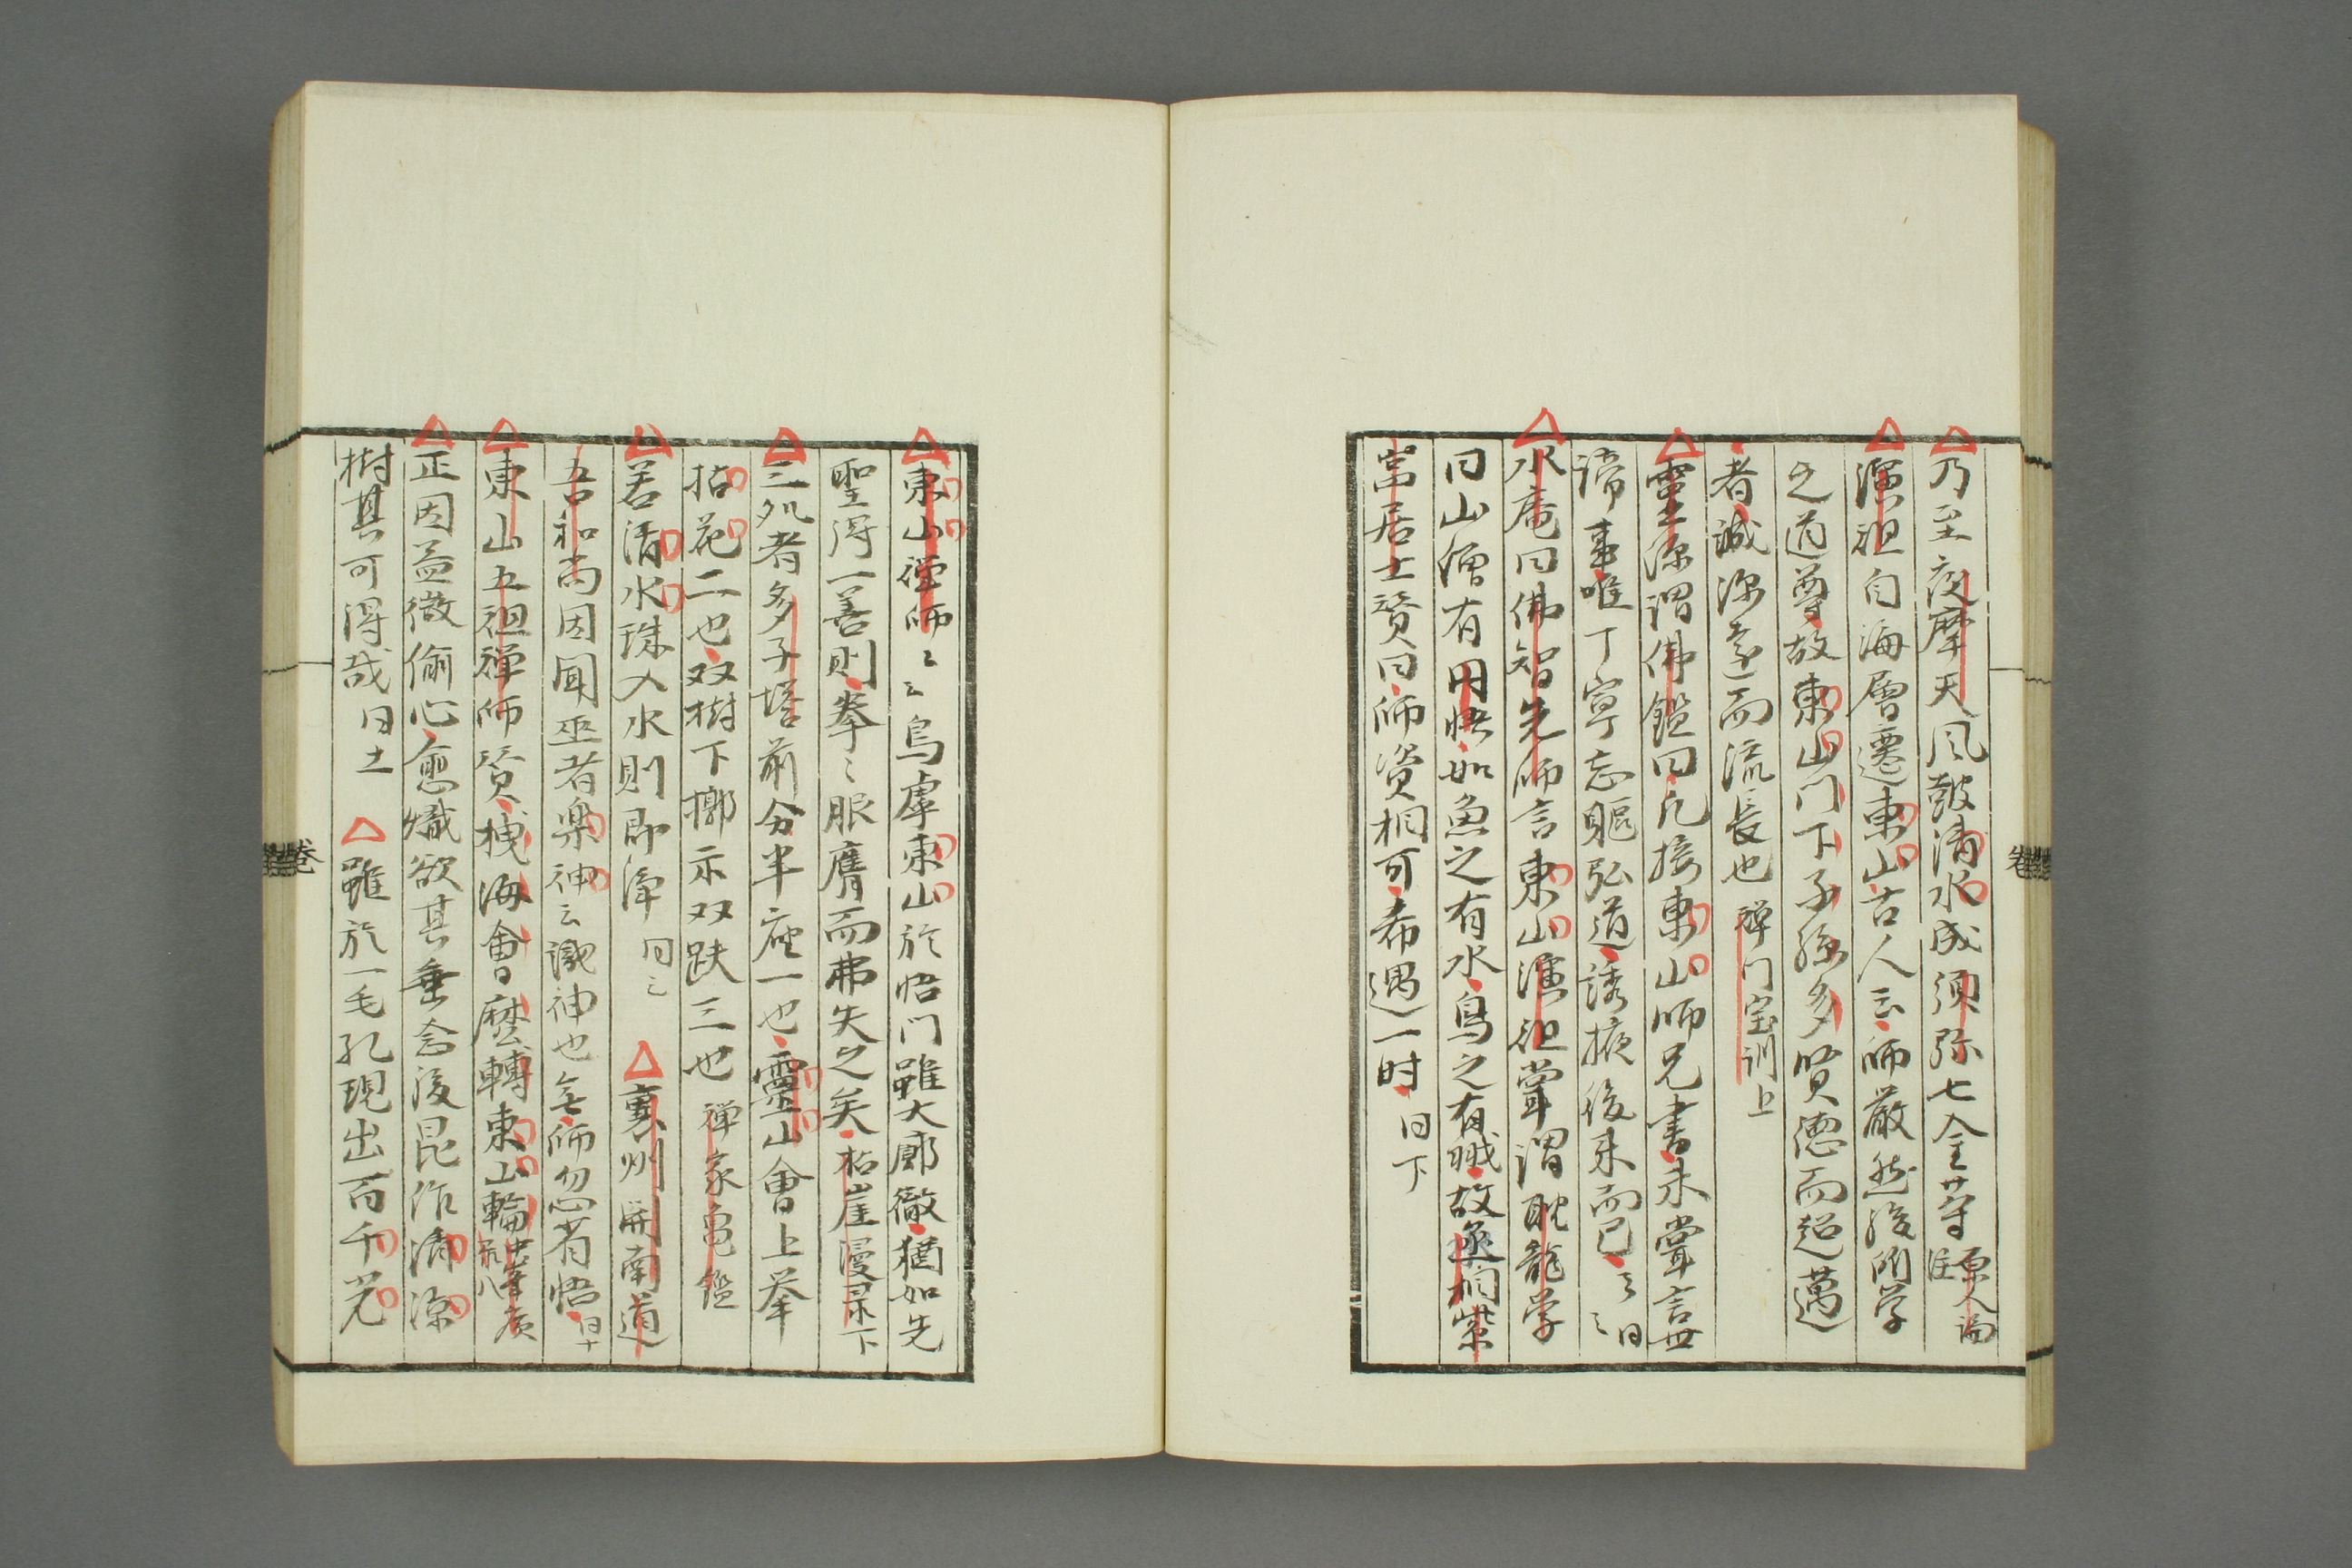 乃至夜摩天風鼓清水成須弥七金等 原人論註
演祖自海會遷東山古人云師厳然後所学
之道尊故東山门下子孫多賢徳而超邁
者誠源遠而流長也 禅门宝訓上
霊源謂佛鑑曰凡接東山師兄書未嘗言世
諦事唯丁寧忘軀弘道誘掖後来而已 同
水庵曰佛智先師言東山演祖嘗謂耿龍学
曰山僧有円悟如魚之有水鳥之有翼故丞相紫
岩居士賛曰師資相可希遇一时 同下
東山禅師〻云烏虖東山於悟门雖大廓徹猶如先
聖得一善則拳〻服膺而弗失之矣 枯崖漫录下
三処者多子塔前分半座一也霊山會上挙
拈花二也双樹下槨示双趺三也 禅家亀鑑
若清水珠入水則即浄 同
襄州関南道
吾和尚因聞巫者楽神云識神也無師忽有悟 同十
東山五祖禅師賛 拽海會磨轉東山輪 中峯廣
正因益微偷心愈熾欲其垂念後昆作清凉
樹其可得哉 同土
雖於一毛孔現出百千光
卷
卷